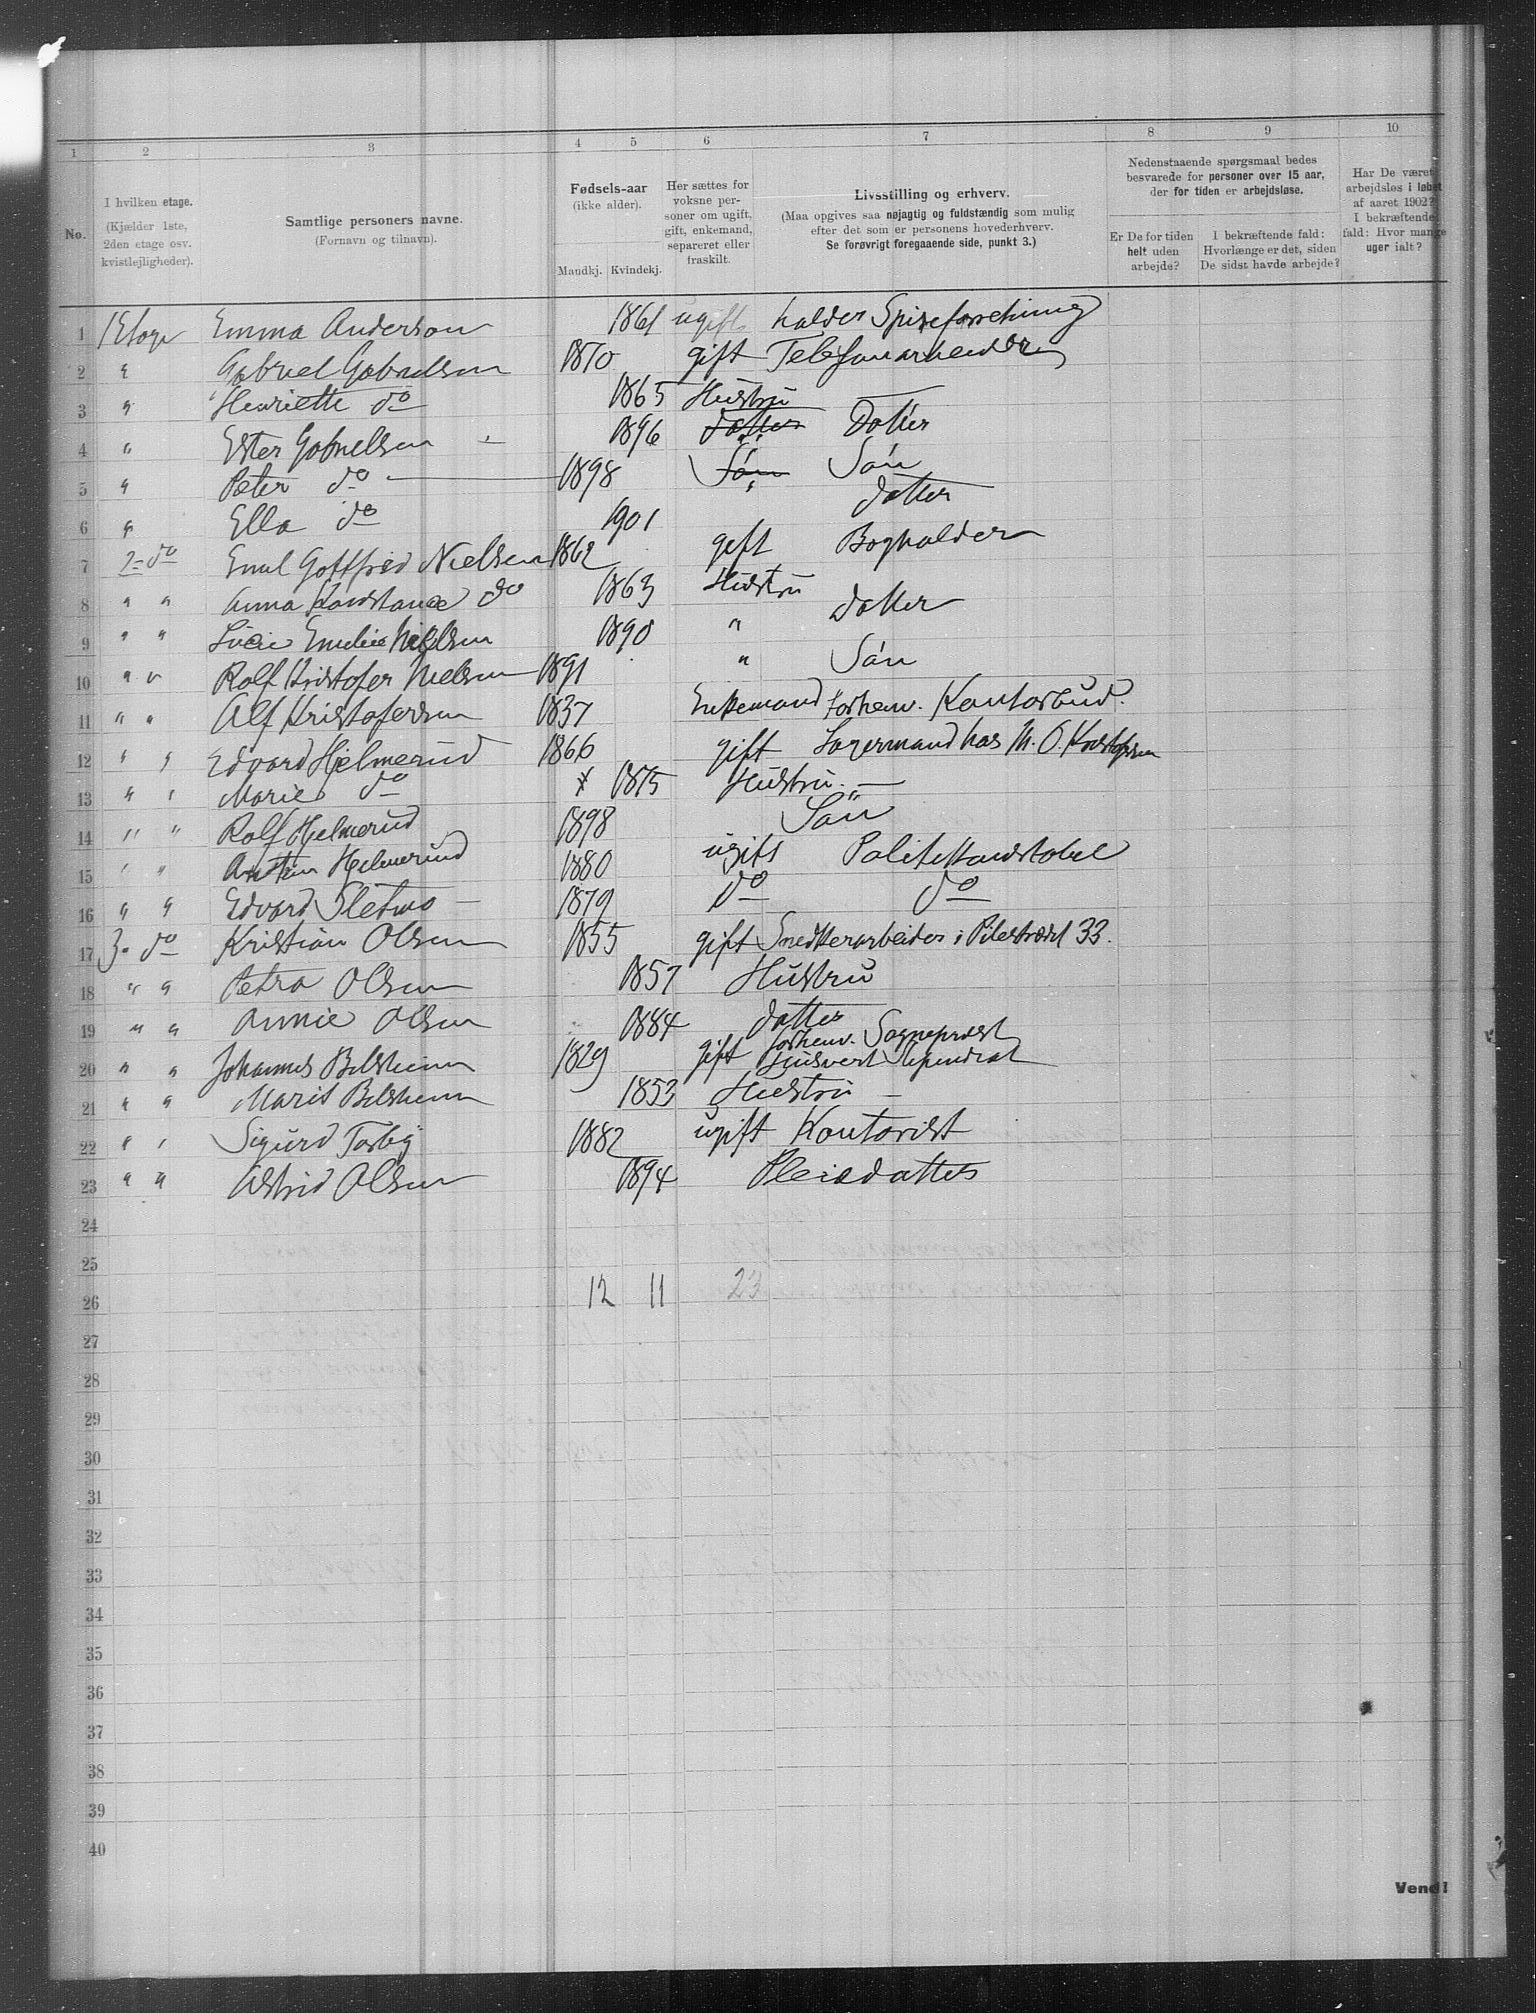 1 2 3 4 5 6 7 8 9 10
No.
I hvilken etage.
(Kjælder 1ste, 2den etage osv. kvistlejligheder).
Samtlige personers navne.
(Fornavn og tilnavn).
Fødsels-aar
(ikke alder).
Mandkj. Kvindekj.
Her sættes for voksne personer om ugift, gift, enkemand, separeret eller fraskilt.
Livsstilling og erhverv.
(Maa opgives saa nøjagtig og fuldstændig som mulig efter det som er personens hovederhverv.
Se forøvrigt foregaaende side, punkt 3.)
Nedenstaaende spørgsmaal bedes besvarede for personer over 15 aar, der for tiden er arbejdsløse.
Er De for tiden helt uden arbejde?
I bekræftende fald: Hvorlænge er det, siden De sidst havde arbejde?
Har De været arbejdsløs i løbet af aaret 1902? I bekræftende fald: Hvor mange uger ialt?
1 1 Etage Emma Anderson 1861 ugift holder Spiseforretning
2 " Gabriel Gabrielsen 1870 gift Telefonarbeider
3 " Henriette do 1865 Hustru
4 " Ester Gabrielsen 1896 Datter Datter
5 " Peter do 1898 Søn Søn
6 " Ella do 1901 Datter
7 2 do Emil Gottfred Nielsen 1862 gift Bogholder
8 " " Anna Konstance do 1863 Hustru
9 " " Emilie Nielsen 1890 " Datter
10 " " Rolf Kristofer Nielsen 1891 " Søn
11 " " Alf Kristofersen 1837 Enkemand forhenv. Kontorbud.
12 " " Edvard Hjelmerud 1866 gift Lagermand hos M. O. Kristofersen
13 " " Marie do 1875 Hustru
14 " " Rolf Hjelmerud 1898 Søn
15 " " Hjelmerud 1880 ugift Politikonstabel
16 " " Edvard Sletmo 1879 do do
17 3 do Kristian Olsen 1855 gift Snedkerarbeider i Pilestrædet 33.
18 " " Petra Olsen 1857 Hustru
19 " " Annie Olsen 1884 Datter
20 " " Johannes Belsheim 1829 gift forhenv. Sogneprest Stipendiat
21 " " Marit Belsheim 1853 Hustru
22 " " Sigurd Torby 1882 ugift Kontorist
23 " " Astrid Olsen 1894 Pleiedatter
24
25
26 12 11 23
27
28
29
30
31
32
33
34
35
36
37
38
39
40
Vend!